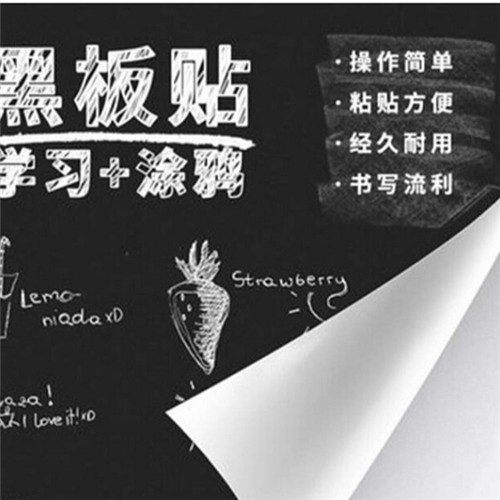 黑板贴
学习+涂鸦
·操作简单
·粘贴方便
·经久耐用
·书写流利
Strawberry
Lemo-
niadaxD
I Love it!xD